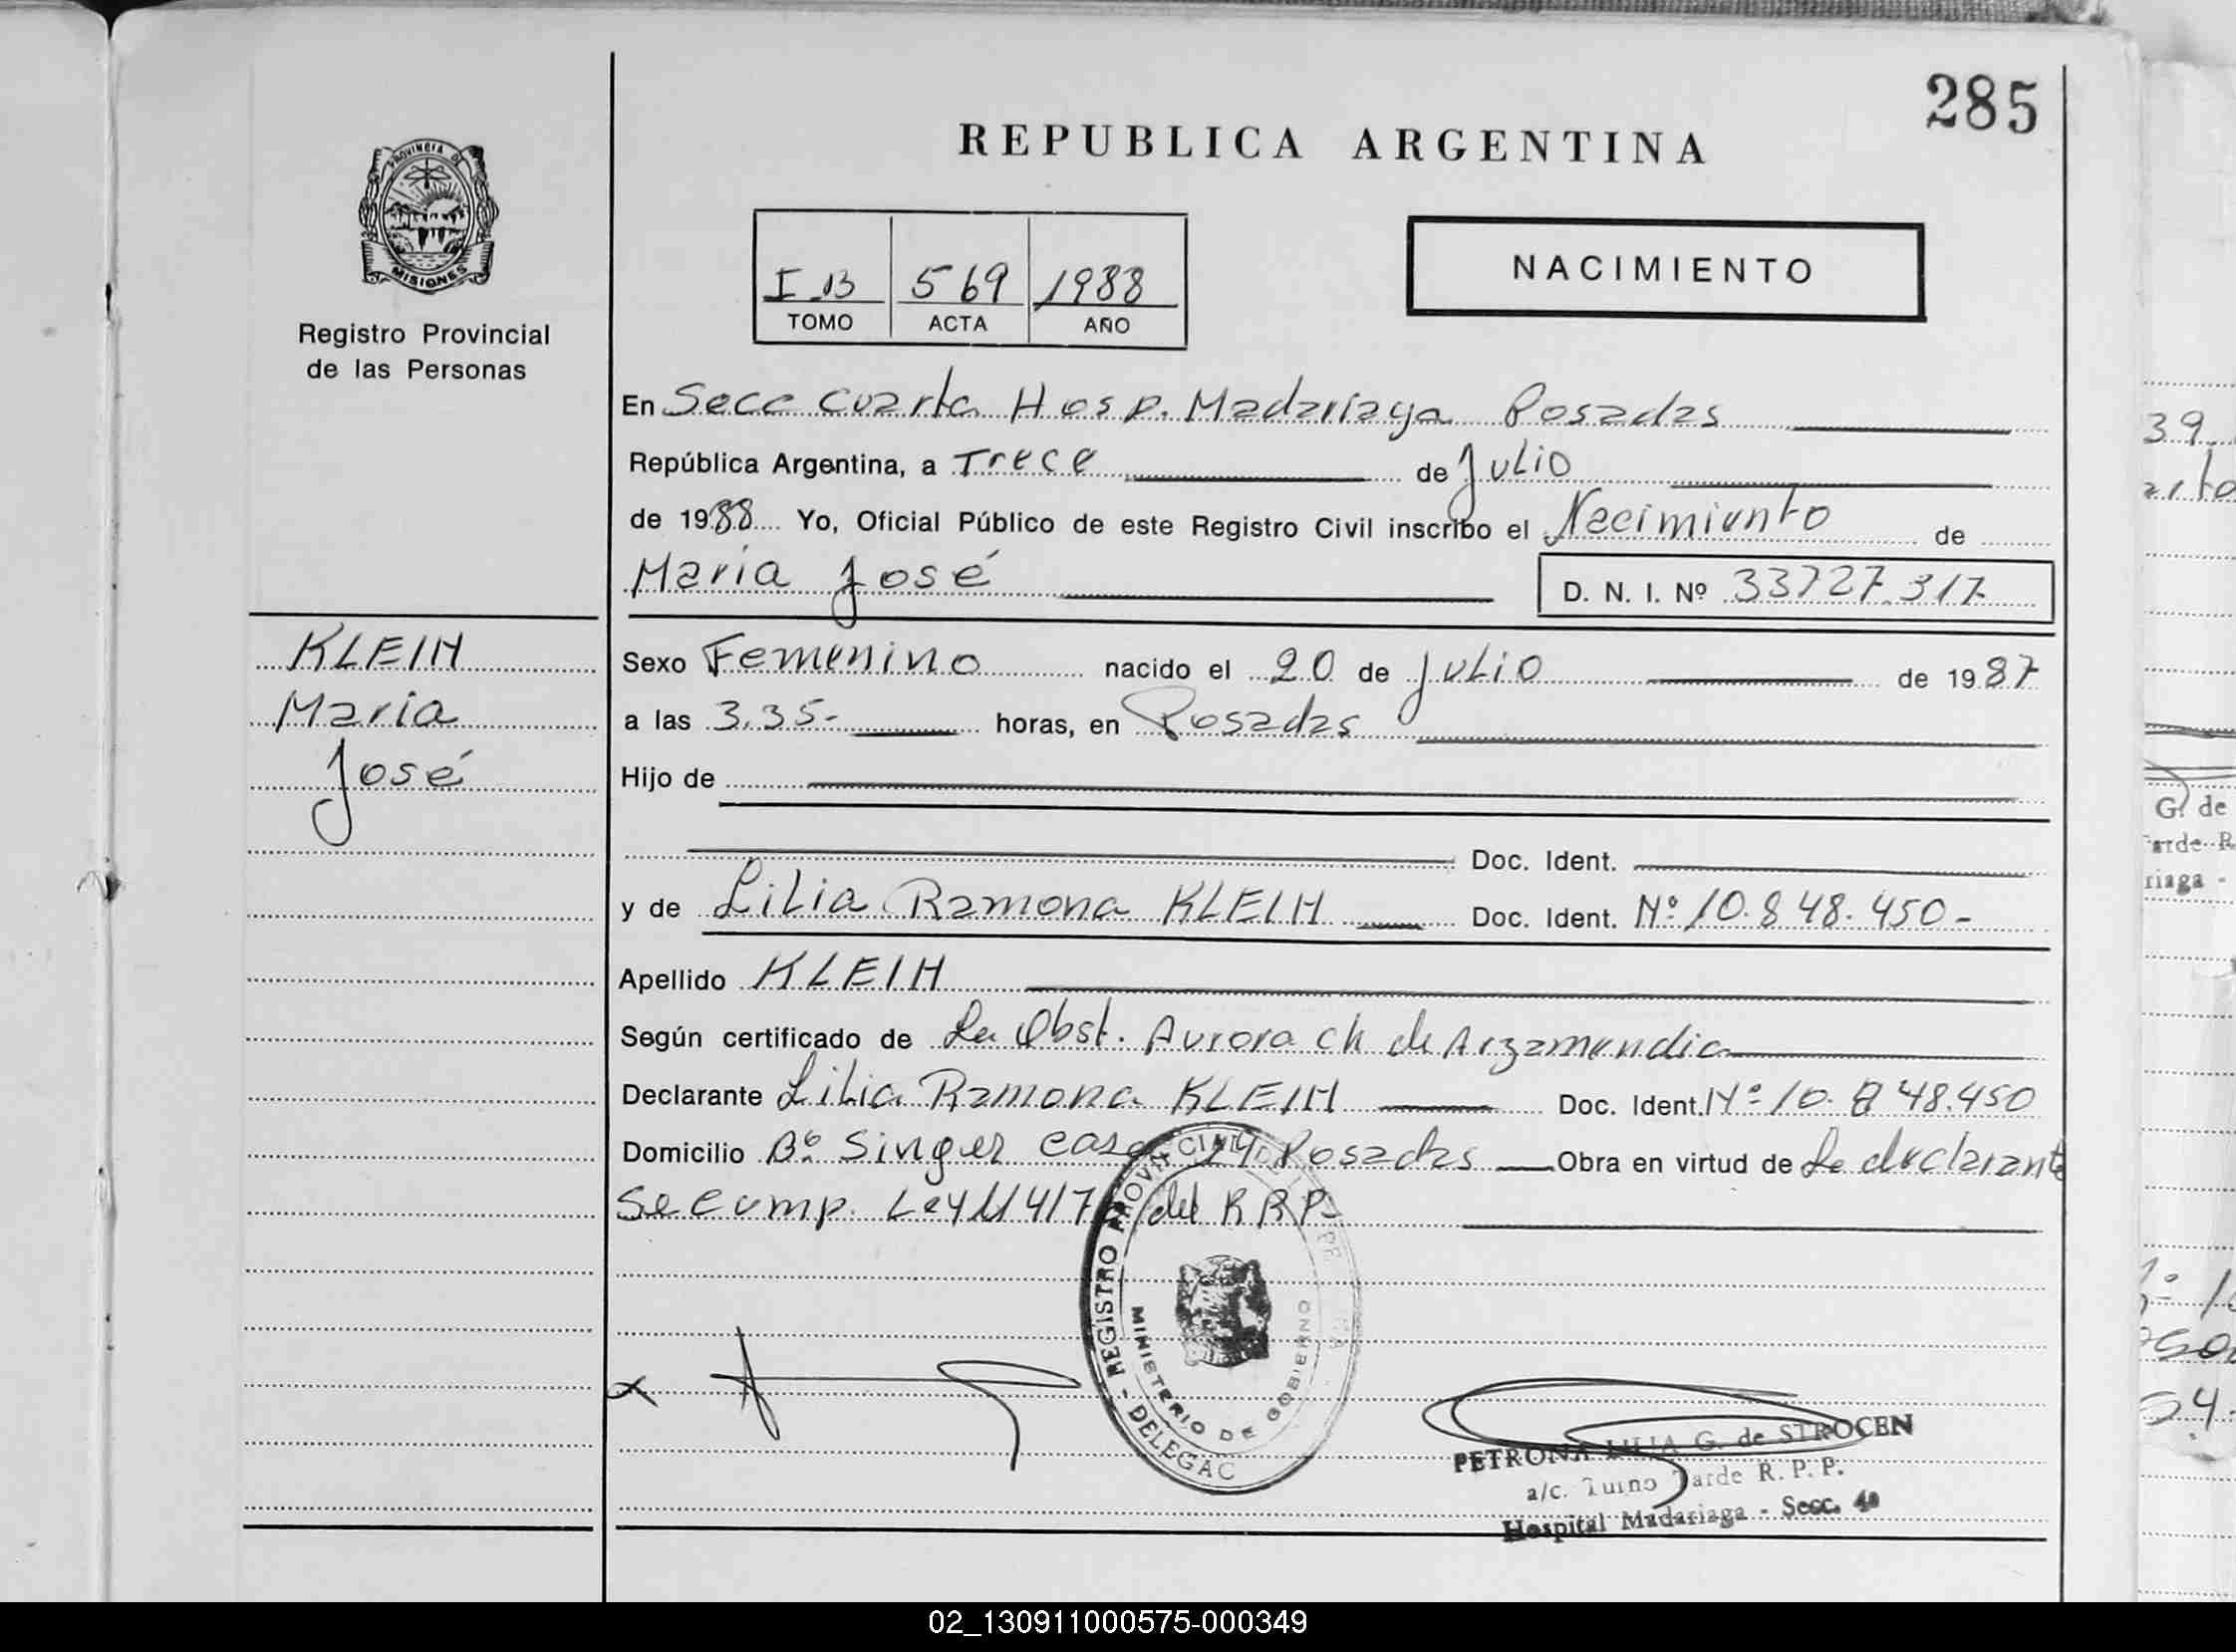 285
REPUBLICA ARGENTINA
PROVINCIA DE
MISIONES
Registro Provincial
de las Personas
I B 569 1988
TOMO ACTA AÑO
NACIMIENTO
En Secc Cuarta Hosp. Madariaga Posadas
República Argentina, a Trece de Julio
de 1988 Yo, Oficial Público de este Registro Civil inscribo el Nacimiento de
María José D. N. I. Nº 33727.317
KLEIN
Maria
José
Sexo Femenino nacido el 20 de Julio de 1987
a las 3.35- horas, en Posadas
Hijo de
Doc. Ident.
y de Lilia Ramona KLEIN Doc. Ident. Nº 10.848.450-
Apellido KLEIN
Según certificado de La Obst. Aurora Ch de Arzamendia
Declarante Lilia Ramona KLEIN Doc. Ident. Nº 10.848.450
Domicilio Bº Singer casa 14 Posadas Obra en virtud de La declarante
Se cump. Ley del R R P-
REGISTRO PROVINCIAL - DELEGAC
MINISTERIO DE GOBIERNO
PETRONA LILIA G. de STROCEN
a/c. Turno Tarde R. P. P.
Hospital Madariaga - Secc. 4a
39
G. de
arde R
riaga -
54
02_130911000575-000349